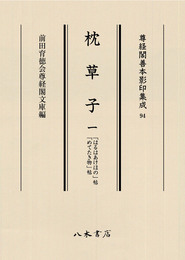 尊経閣善本影印集成 94
枕草子 一
「はるはあけぼの」帖
「めでたき物」帖
前田育徳会尊経閣文庫編
八木書店